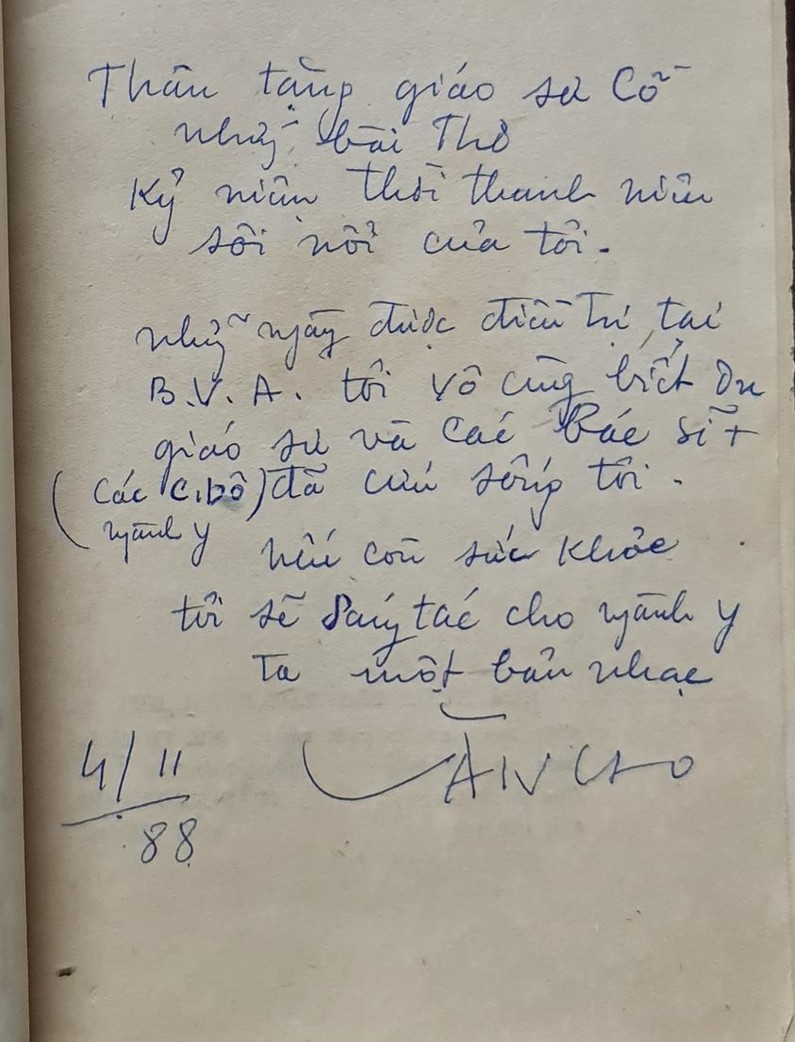 Thân tặng giáo sư Cỗ
những bài Thơ
Kỷ niệm thời thanh niên
sôi nổi của tôi.
những ngày được điều trị tại
B.V.A. tôi vô cùng biết ơn
giáo sư và các Bác sĩ +
(các c.bộ) đã cứu sống tôi.
ngành y
nếu còn sức khỏe
tôi sẽ sáng tác cho ngành y
ta một bản nhạc
VĂN CAO
4/11
88